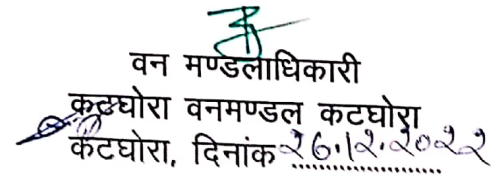 वन मण्डलाधिकारी
कटघोरा वनमण्डल कटघोरा
कटघोरा, दिनांक २६.१२.२०२२